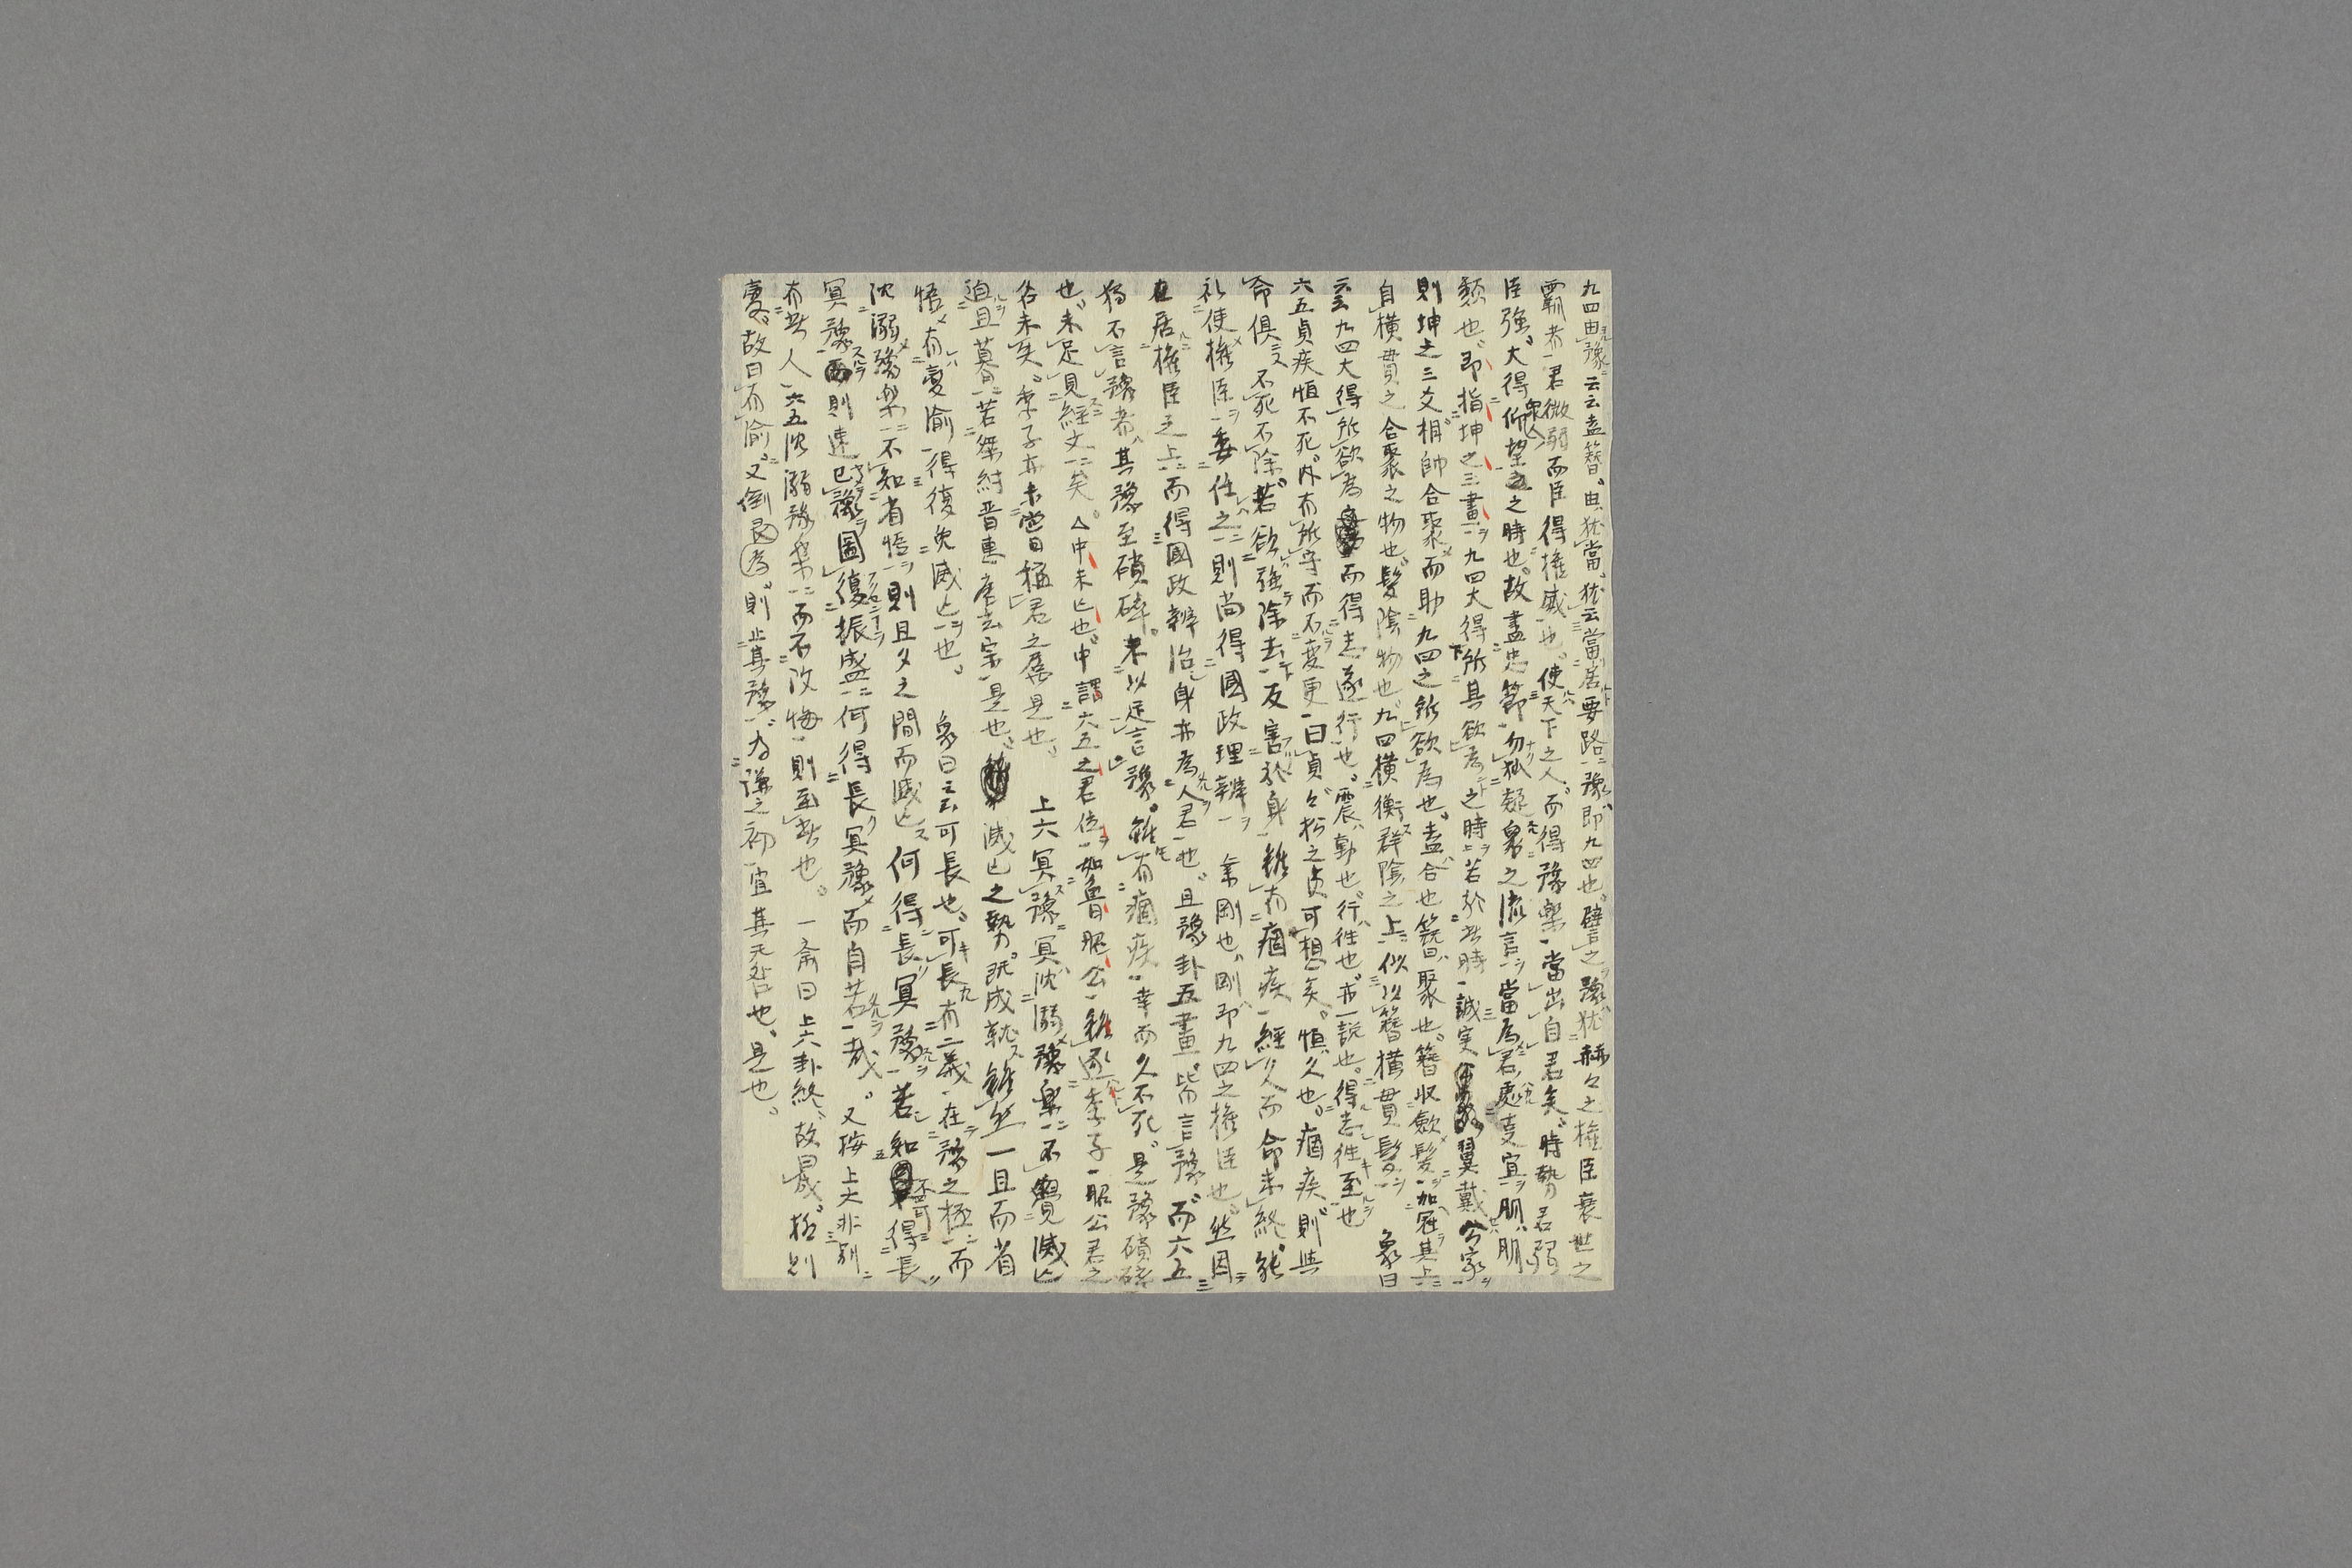 九四由豫云云盍簪。由、猶當。猶云當居要路。豫即九四也。譬之豫猶赫々之權臣衰世之
霸者。君微弱而臣得權威也。使天下之人而得豫樂。當出自君矣。時勢君弱
臣強。大得衆人仰望之時也。故盡忠節勿狐疑衆之流言。當為君處変宜。朋、朋
類也。即指坤之三畫。九四大得所其欲為之時。若於此時誠実翼戴公家
則坤之三爻相帥合聚而助九四之所欲為也。盍合也簪、聚也。簪收斂髪加冠其上
自橫貫之合聚之物也。髮陰物也九四橫衡群陰之上似以簪橫貫髮。 象曰
云云九四大得所欲為而得志遂行也。震、動也。行、往也。亦一說也。得志往至也
六五貞疾恒不死。内有所守而不変更曰貞々松之貞可想矣。恒、久也。痼疾則與
命俱不死不除。若欲強除去反害於身。雖有痼疾經久而命未終。能
礼使權臣委任之則尚得國政理辨。 乗剛也。剛即九四之權臣也。然因
在居權臣之上而得國政辨治身亦為人君也。且豫卦五畫皆言豫。而六五
獨不言豫者、其豫至碩碎。未以足言豫。雖有痼疾幸而久不死。是豫碩碎
也。未足見經文矣。△中未亡也。中謂六五之君位如魯昭公雖逐季子昭公君之
名未失。季子亦未嘗曰極君之屬是也。 上六冥豫冥沈溺豫樂不覺滅亡
迫且莫若桀紂晋惠唐玄宗是也。滅亡之勢既成就雖然一旦而省
悟有変渝得復免滅亡也。 象曰云云可長也。可長有二義在豫之極而
沈溺豫樂不知省悟則旦夕之間而滅亡何得長冥豫若知不可得長
冥豫則速已豫圖復振盛何得長冥豫而自若哉。 又按上六非別
有此人六五沈溺豫樂而不改悔則至此也。 一斎曰上六卦終、故曰成。極則
変。故曰有渝。又倒艮為。則止其豫。為謙之初宜其无咎也。是也。